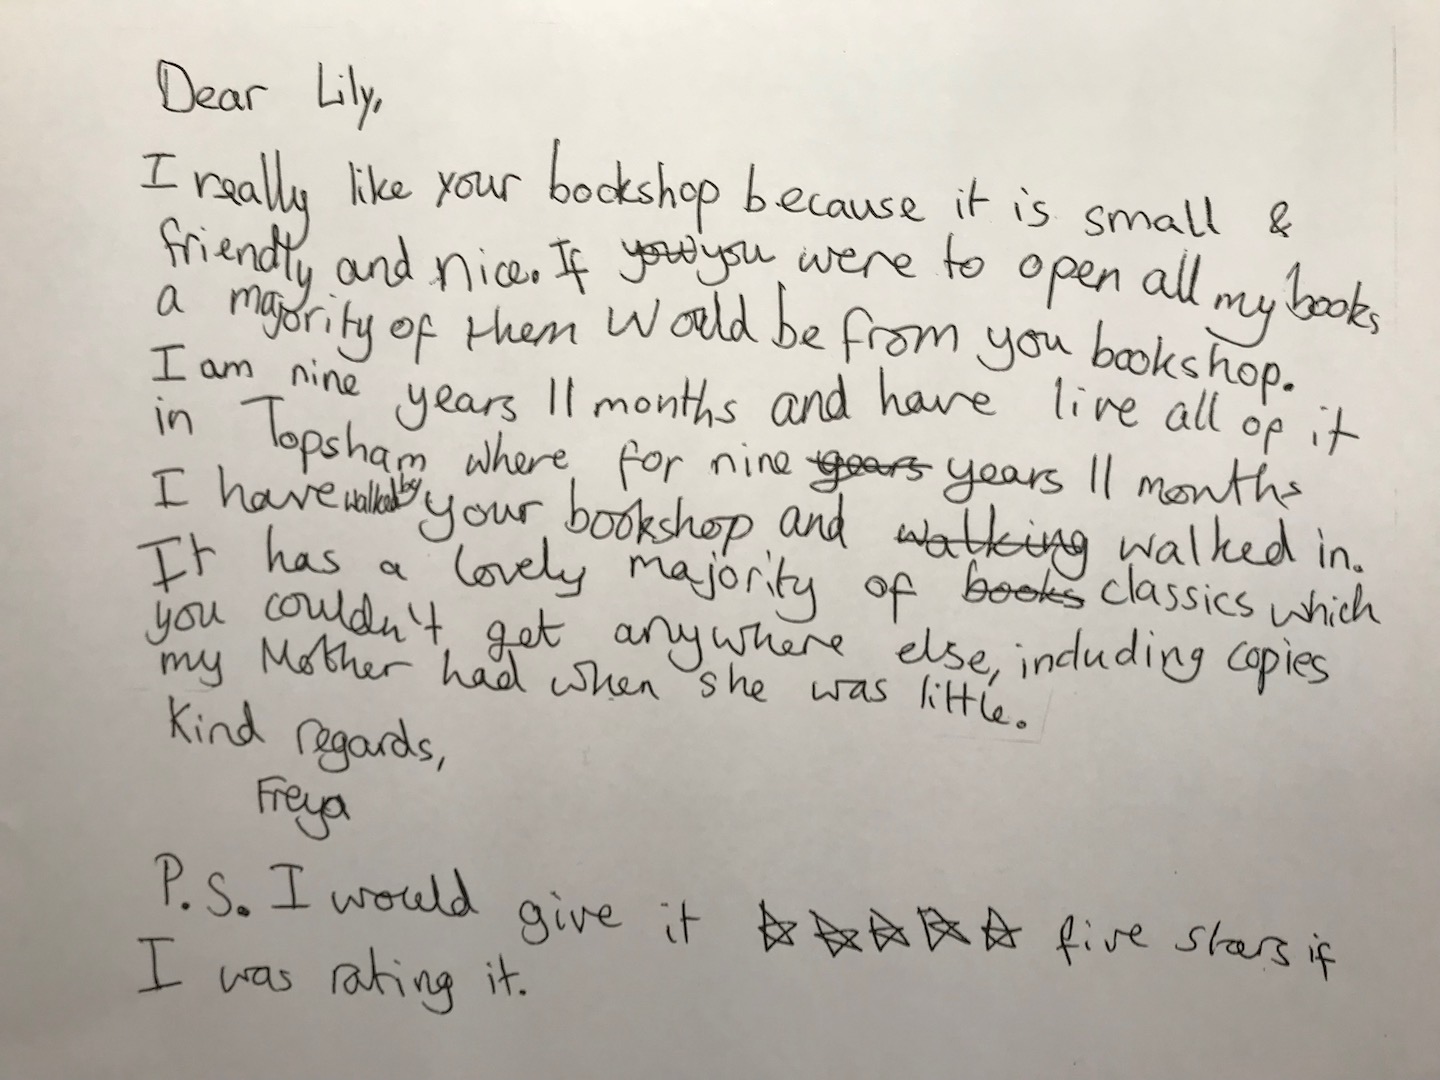 Dear Lily,
I really like your bookshop because it is small &
friendly and nice. If you were to open all my books
a majority of them would be from you bookshop.
I am nine years 11 months and have live all of it
in Topsham where for nine years years 11 months
I have walked by your bookshop and walking walked in.
It has a lovely majority of books classics which
you couldn't get anywhere else, including copies
my Mother had when she was little.
Kind regards,
Freya
P.S. I would give it ☆☆☆☆☆ five stars if
I was rating it.